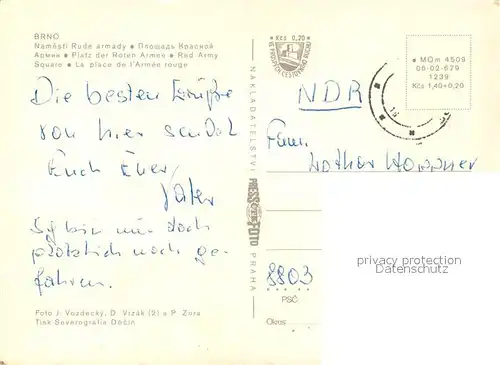 BRNO
Náměstí Rudé armády • Площадь Красной
Армии • Platz der Roten Armee • Red Army
Square • La place de l'Armée rouge
Kčs 0,20
• MOm 4509
06-02-679
1239
Kčs 1,40+0,20
Die besten Grüße
von hier sendet
Euch Euer
Vater
Ich bin nun doch
plötzlich noch ge-
fahren.
NAKLADATELSTVÍ PRESSFOTO PRAHA
NDR
Fam.
Lothar
8803
PSČ
Okres
Foto J. Vozdecký, D. Vizák (2) a P. Zora
Tisk Severografia Děčín
privacy protection
Datenschutz